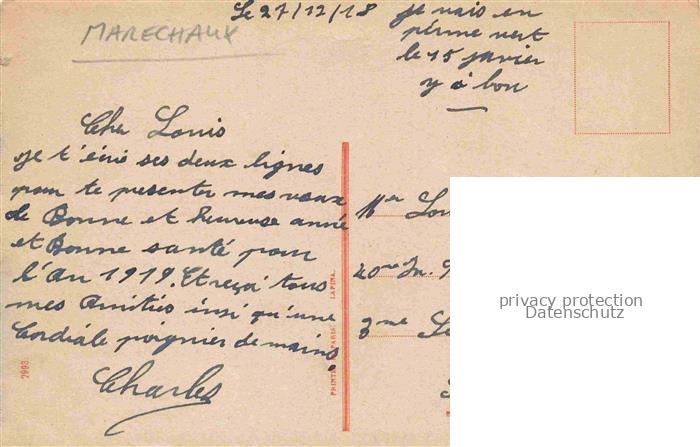 MARECHAUX
Le 27/12/18
je vais en
périme vert
le 15 janvier
y a bon
Cher Louis
je t'écris ses deux lignes
pour te presenter mes vœux
de Bonne et heureuse année
et Bonne santé pour
l'An 1919. Et reçoi tous
mes Amitiés insi qu'une
Cordiale poignier de mains
Charles
Mer Lou
20me In.
3me Se
7993.
PARIS. LAPINA.
privacy protection
Datenschutz